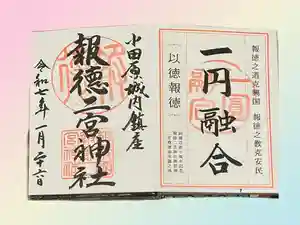 小田原城内鎮座
報徳二宮神社
令和七年一月二十六日
報徳之道克興国 報徳之教克安民
一円融合
以徳報徳